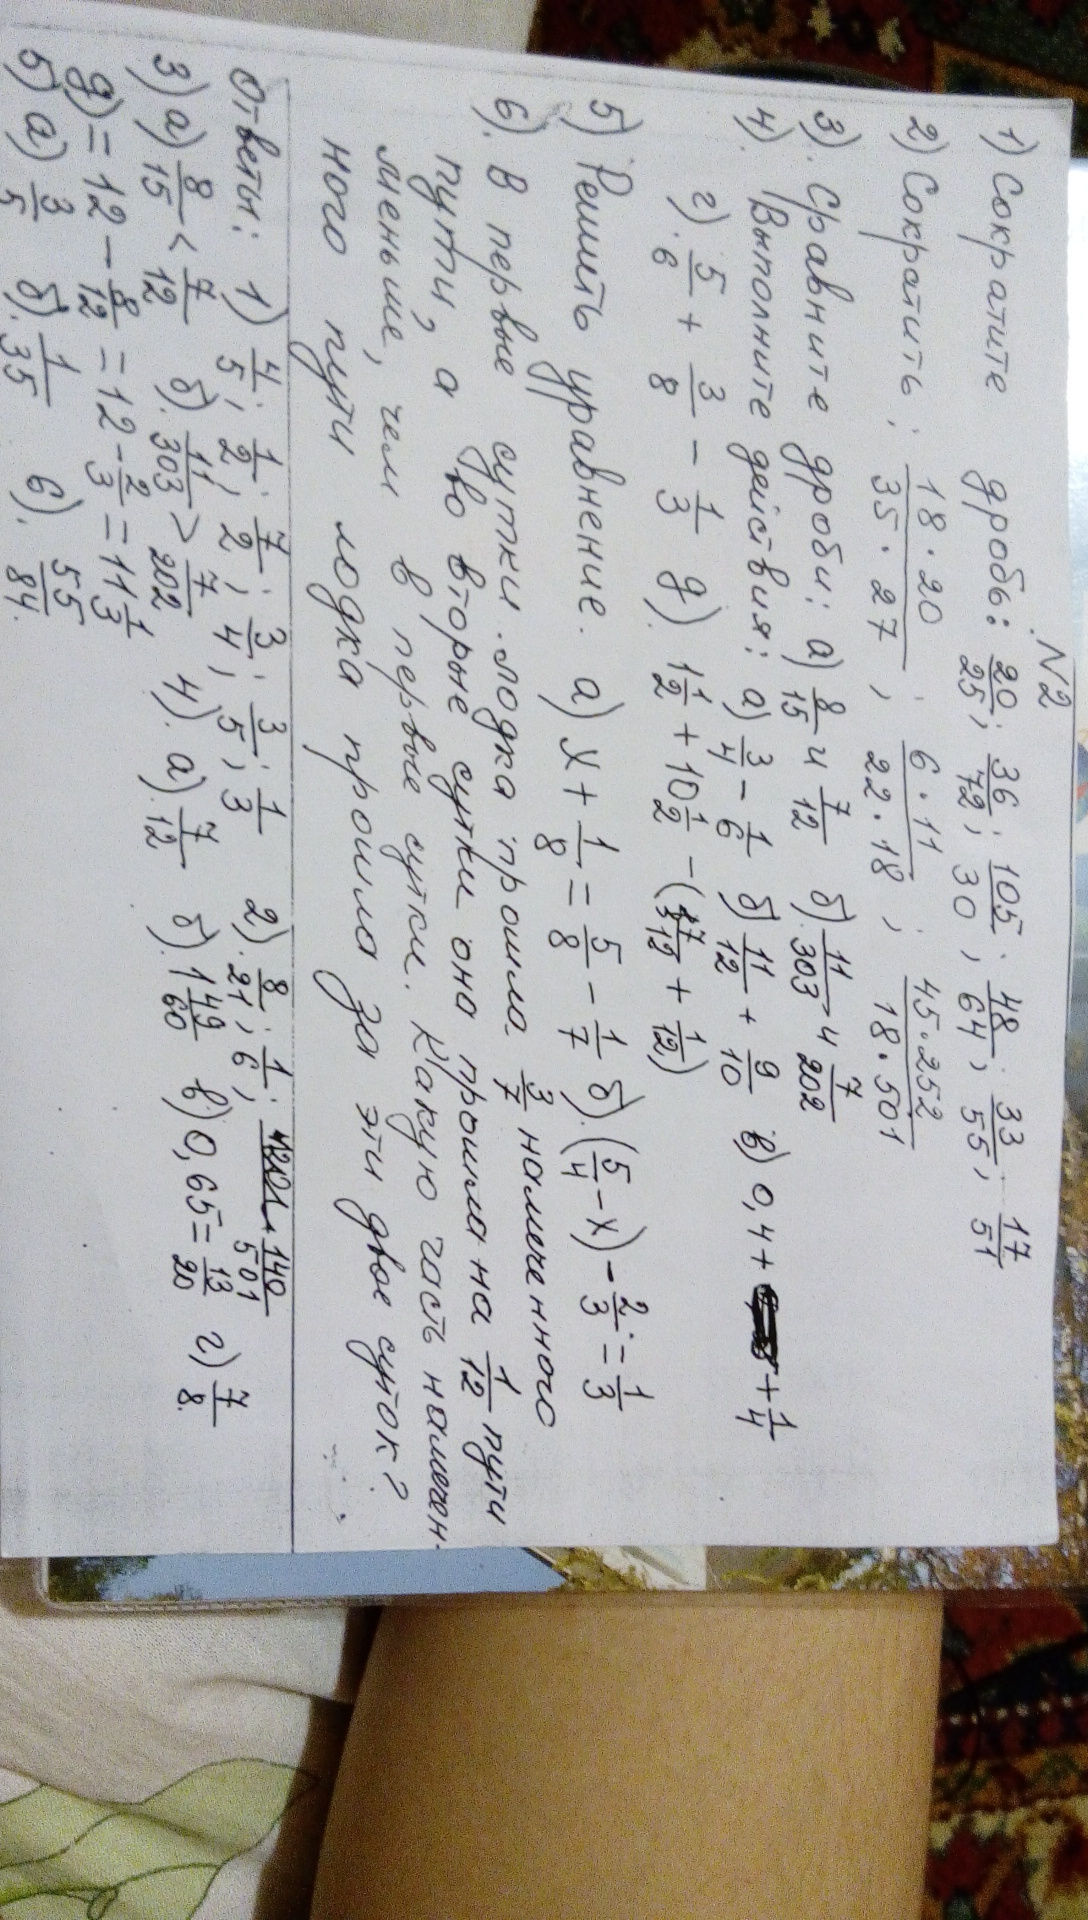 N2
1) Сократите дробь: 20/25; 36/72; 105/30; 48/64; 33/55; 17/51
2) Сократить: 18·20/35·27; 6·11/22·18; 45·252/18·501
3). Сравните дроби: а) 8/15 и 7/12 б). 11/303 и 7/202
4). Выполните действия: а) 3/4 - 1/6 б) 11/12 + 9/10 в) 0,4 + + 1/4
г). 5/6 + 3/8 - 1/3 д). 1 1/2 + 10 1/2 - (7/12 + 1/12)
5) Решить уравнение. а) x + 1/8 = 5/8 - 1/7 б). (5/4 - x) - 2/3 = 1/3
6). В первые сутки лодка прошла 3/7 намеченного
пути, а во вторые сутки она прошла на 1/12 пути
меньше, чем в первые сутки. Какую часть намечен-
ного пути лодка прошла за эти двое суток?
Ответы: 1) 4/5; 1/2; 7/2; 3/4; 3/5; 1/3 2). 8/21; 1/6; 140/501
3) а) 8/15 < 7/12 б). 11/303 > 7/202 4). а). 7/12 б). 1 49/60 в) 0,65 = 13/20 г) 7/8.
д) = 12 - 8/12 = 12 - 2/3 = 11 1/3
5) а) 3/5 б). 1/35 6). 55/84.